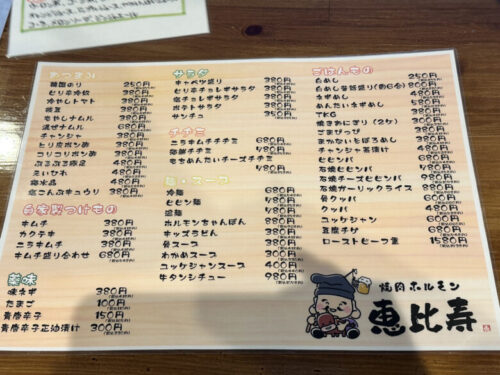 おつまみ
韓国のり 250円
ピリ辛冷奴 380円
冷やしトマト 380円
枝豆 380円
もやしナムル 380円
浜ゼナムル 680円
チャンジャ 380円
ヒリ皮ポン酢 380円
コリコリポン酢 380円
えいひれ 480円
塩こんぶキュウリ 380円
自家製つけもの
キムチ 380円
カクテキ 380円
ニラキムチ 380円
キムチ盛り合わせ 680円
薬味
味ネギ 380円
たまご 100円
青唐辛子 150円
青唐辛子正油漬け 300円
サラダ
キャベツ盛り 380円
ピリ辛チョレギサラダ 380円
塩チョレギサラダ 380円
ポテトサラダ 380円
サンチュ 350円
チヂミ
ニラキムチチヂミ 680円
海鮮チヂミ 780円
もちあんたいチーズチヂミ 780円
麺・スープ
冷麺 680円
ビビン麺 780円
温麺 780円
ホルモンちゃんぽん 880円
キッズうどん 380円
骨スープ 380円
わかめスープ 380円
ユッケジャンスープ 380円
牛タンシチュー 780円
ごはんもの
白めし 250円
ネギめし 480円
あんたいネギめし 480円
TKG 380円
焼きおにぎり(2ケ) 380円
ごまぴっぴ 380円
まかないそぼろめし 380円
チャンジャ茶漬け 480円
ビビンバ 580円
石焼ビビンバ 780円
石焼チーズビビンバ 980円
石焼ガーリックライス 880円
骨クッパ 600円
クッパ 480円
ユッケジャン 680円
豆腐チゲ 680円
ローストビーフ重 1580円
焼肉ホルモン
恵比寿